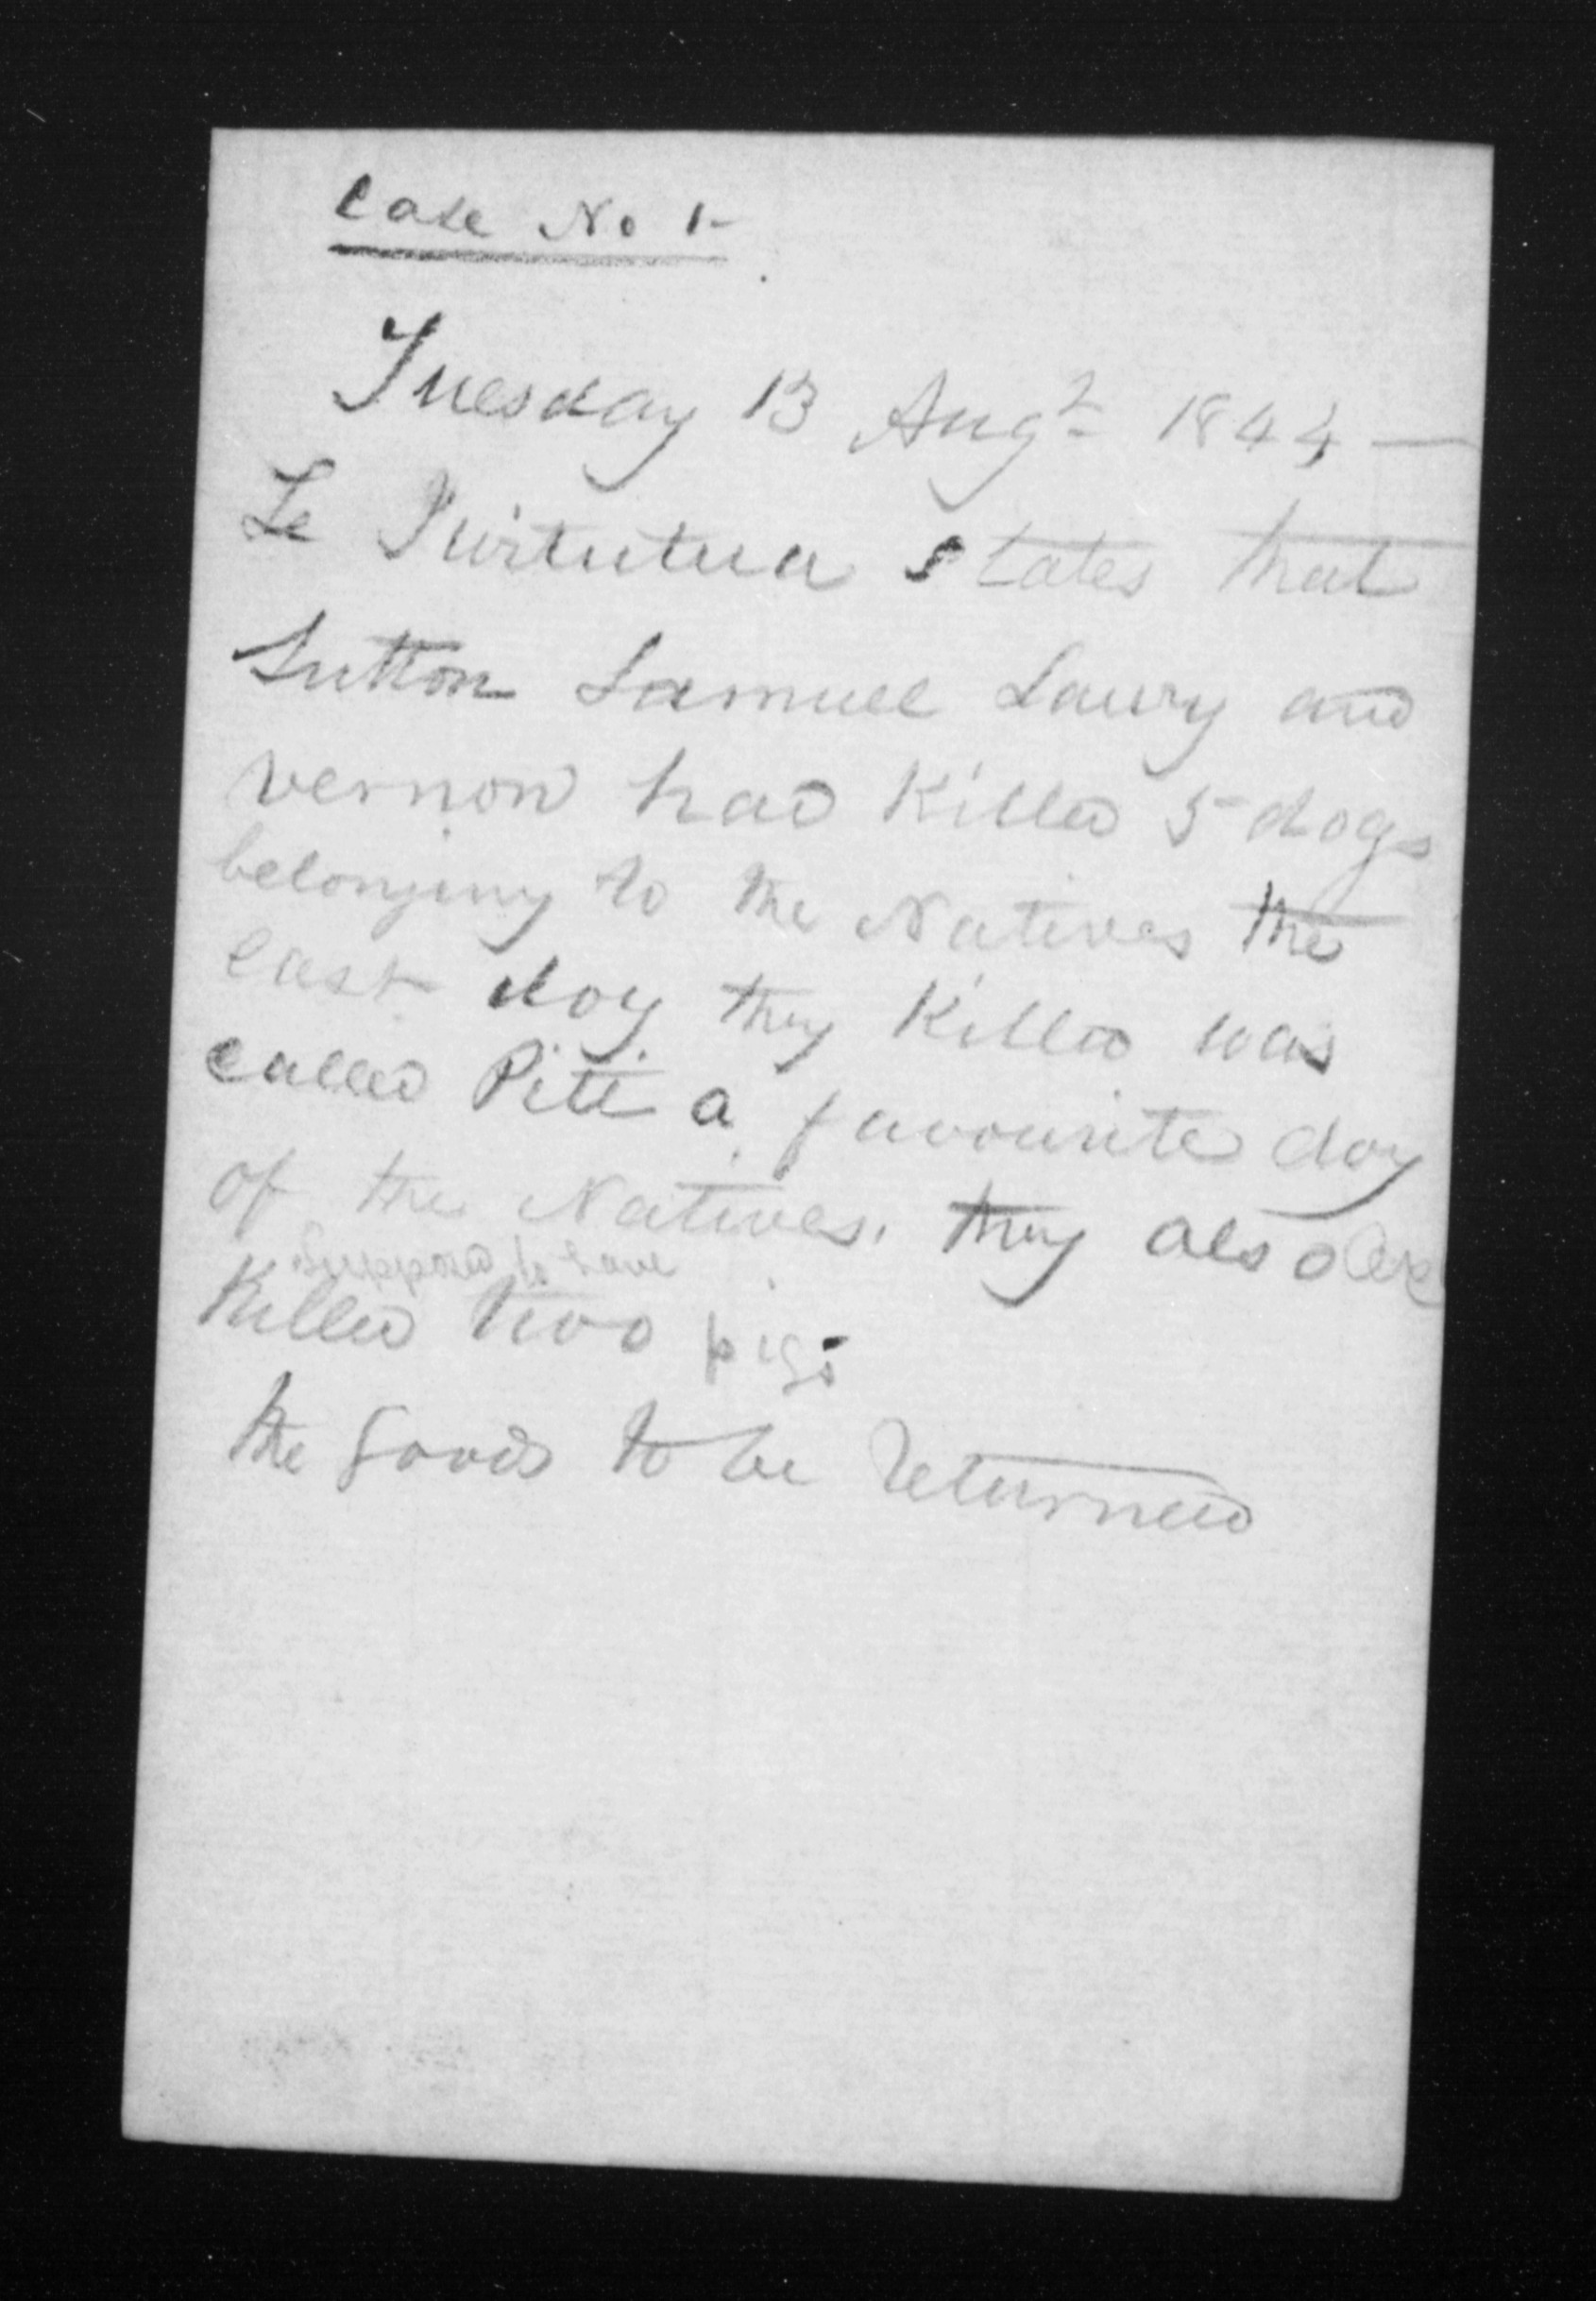 Case No 1-
Tuesday 13 Augt 1844 —
Te Puitutua states that
Sutton Samuel Laury and
Vernon had Killed 5 dogs
belonging to the Natives the
last dog they Killed was
called Piti a favourite dog
of the Natives. they also are
Supposed to have
Killed two pigs
the Goods to be returned